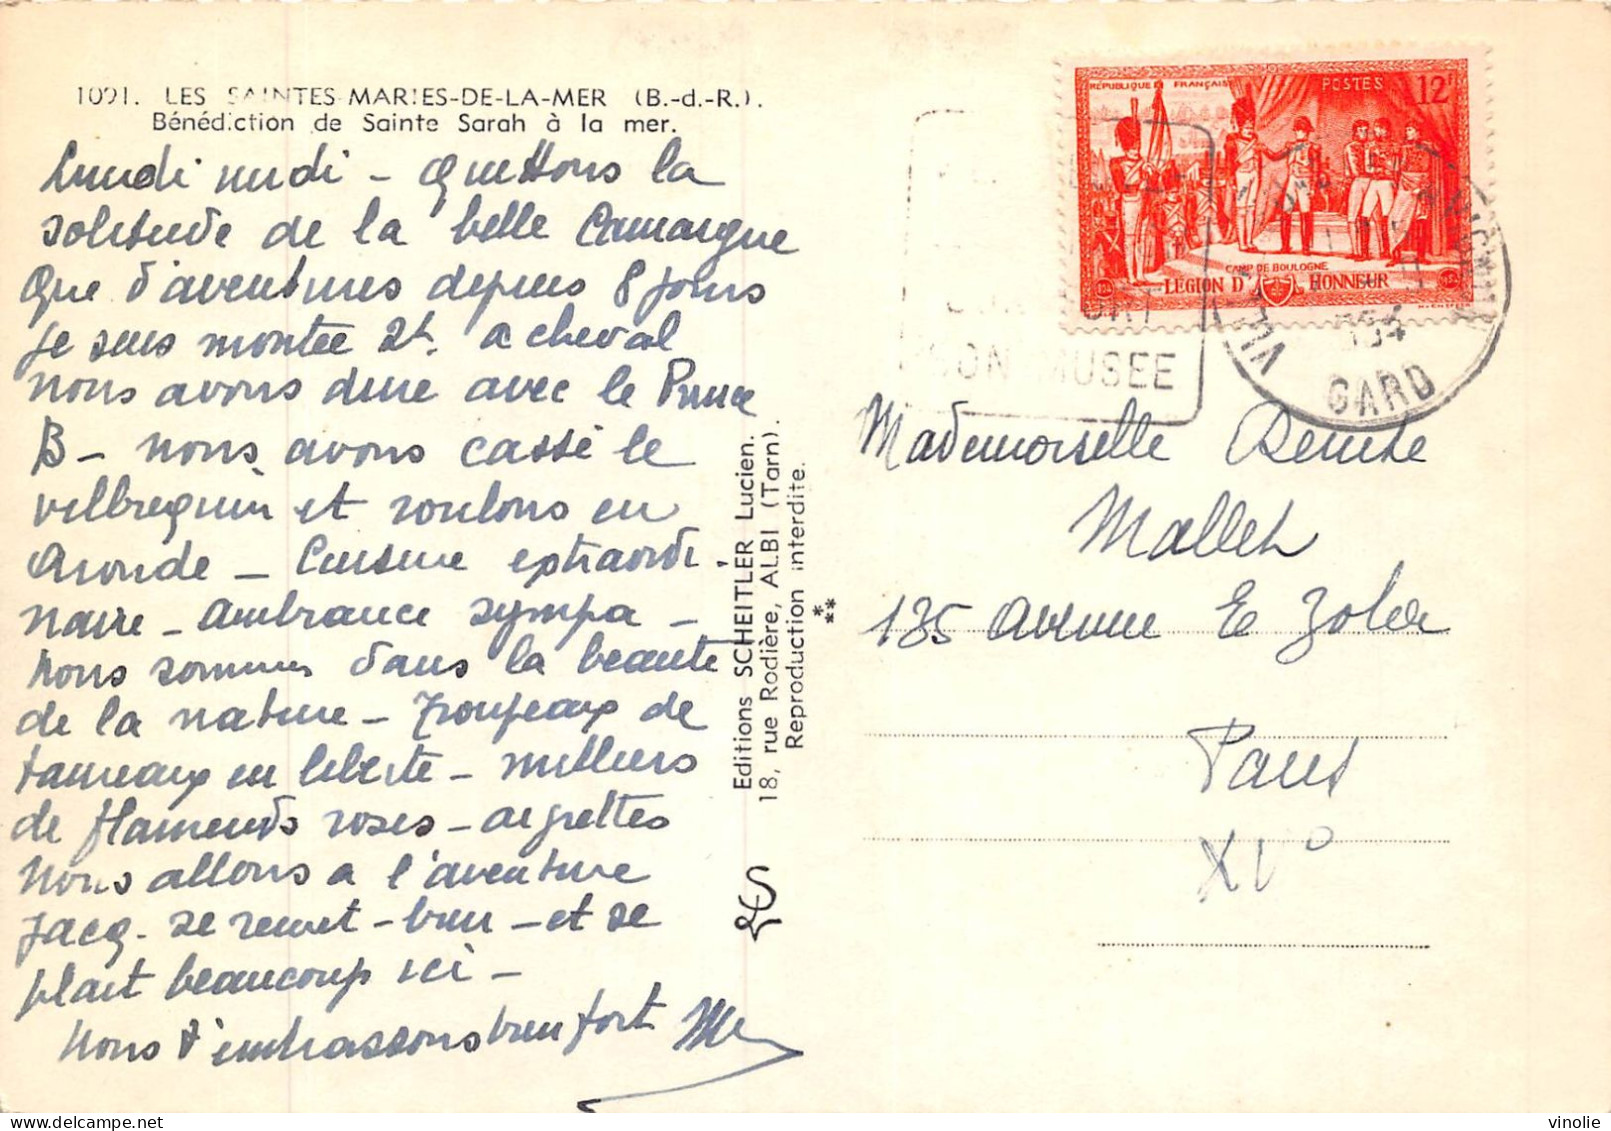 1091. LES SAINTES-MARIES-DE-LA-MER (B.-d.-R.).
Bénédiction de Sainte Sarah à la mer.
Lundi midi – Quittons la
solitude de la belle Camargue
Que d'aventures depuis 8 jours
Je suis montée 2h. a cheval
nous avons dine avec le Prince
B – nous avons cassé le
vilbrequin et roulons en
Aronde – Cuisine extraordi
naire – ambiance sympa –
Nous sommes dans la beauté
de la nature – Troupeaux de
taureaux en liberté – milliers
de flamends roses – aigrettes
Nous allons a l'aventure
Jacq. se remet – bien – et se
plait beaucoup ici –
Nous t'embrassons bien fort
Editions SCHEITLER Lucien.
18, rue Rodière, ALBI (Tarn).
Reproduction interdite.
RÉPUBLIQUE FRANÇAISE POSTES 12F
CAMP DE BOULOGNE
LÉGION D'HONNEUR
SON MUSEE
GARD
Mademoiselle Denise
Mallet
135 Avenue E Zola
Paris
XV°
vinolie